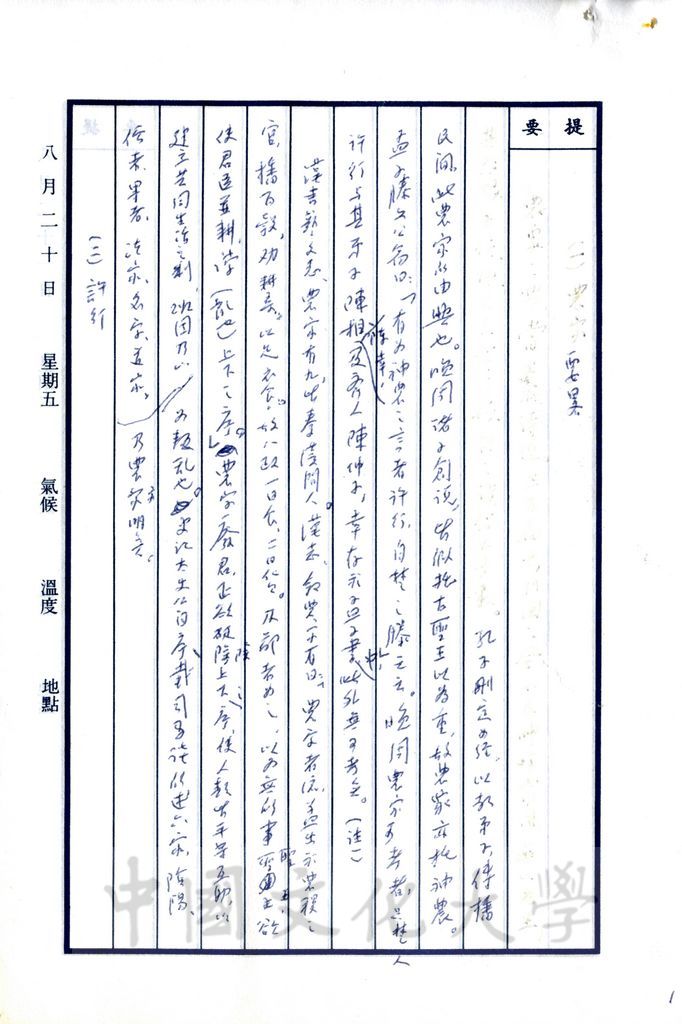 提要
(一) 農家要畧
孔子刪定六經，以教弟子，傳播
民間，此農家所由興也。晚周諸子創說，皆似託古聖王以為重，故農家亦托神農。
孟子滕文公篇曰：「有為神農之言者許行，自楚之滕云云。晚周農家可考者，只楚人
許行与其弟子陳相、陳辛，及齊人陳仲子，幸存於孟子書中，此外無可考矣。(註一)
漢書藝文志，農家有九，此秦漢間人。漢志，敘農家有曰：「農家者流，蓋出於農稷之
官，播百穀，勸耕桑，以足衣食，故八政一曰食，二曰貨。及鄙者為之，以為無所事聖王，欲
使君臣並耕，誖(亂也)上下之序。」農家廢君，正欲破除上下之序，使人類皆平等互助，以
建立共同生活之制，班固乃以為誖亂也。史記太史公自序，載司馬談所述六家，陰陽、
儒者、墨者、法家、名家、道家。乃農家亦明矣。
(二) 許行
八月二十日 星期五 氣候 溫度 地點
中國文化大學
1